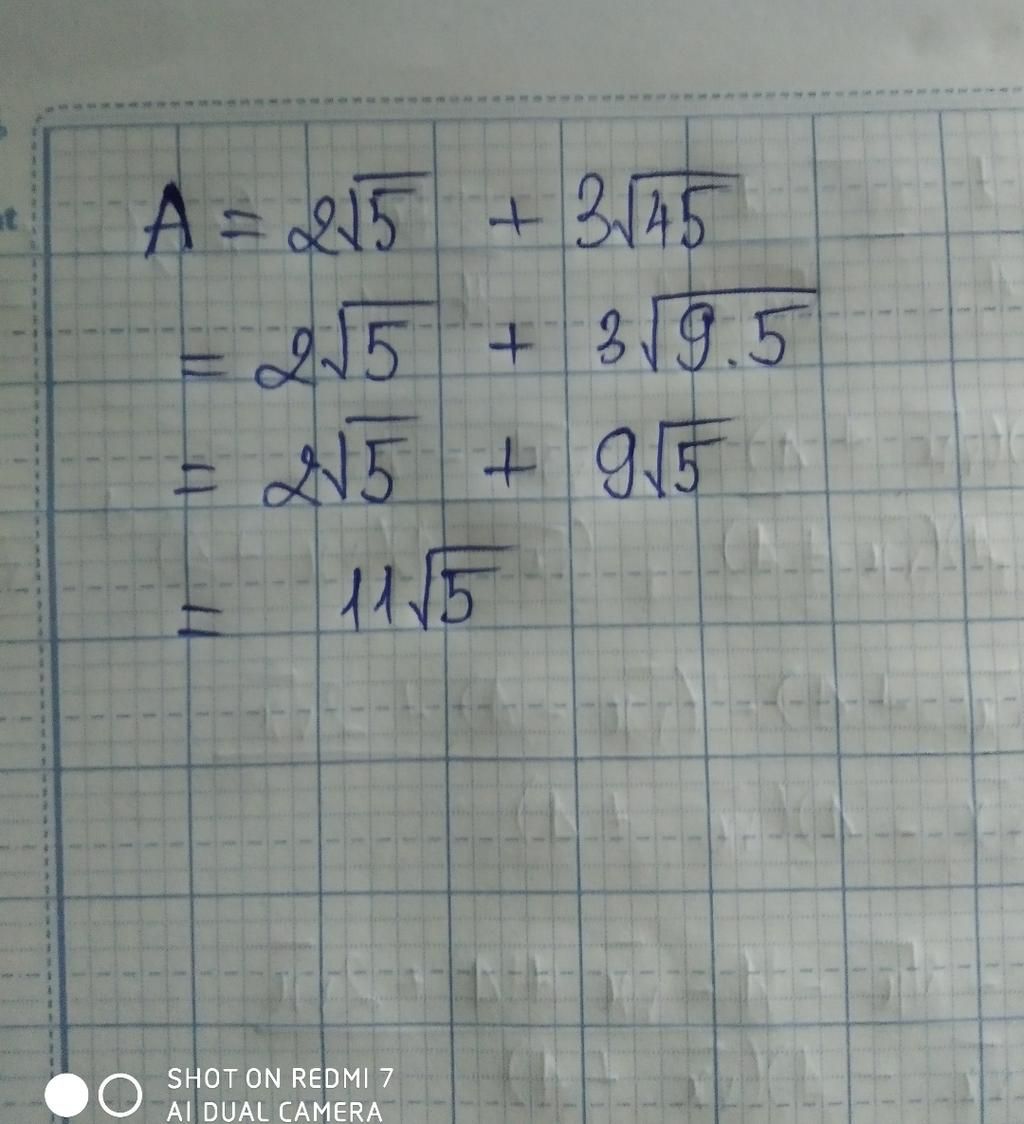 A = 2√5 + 3√45
= 2√5 + 3√9.5
= 2√5 + 9√5
= 11√5
SHOT ON REDMI 7
AI DUAL CAMERA